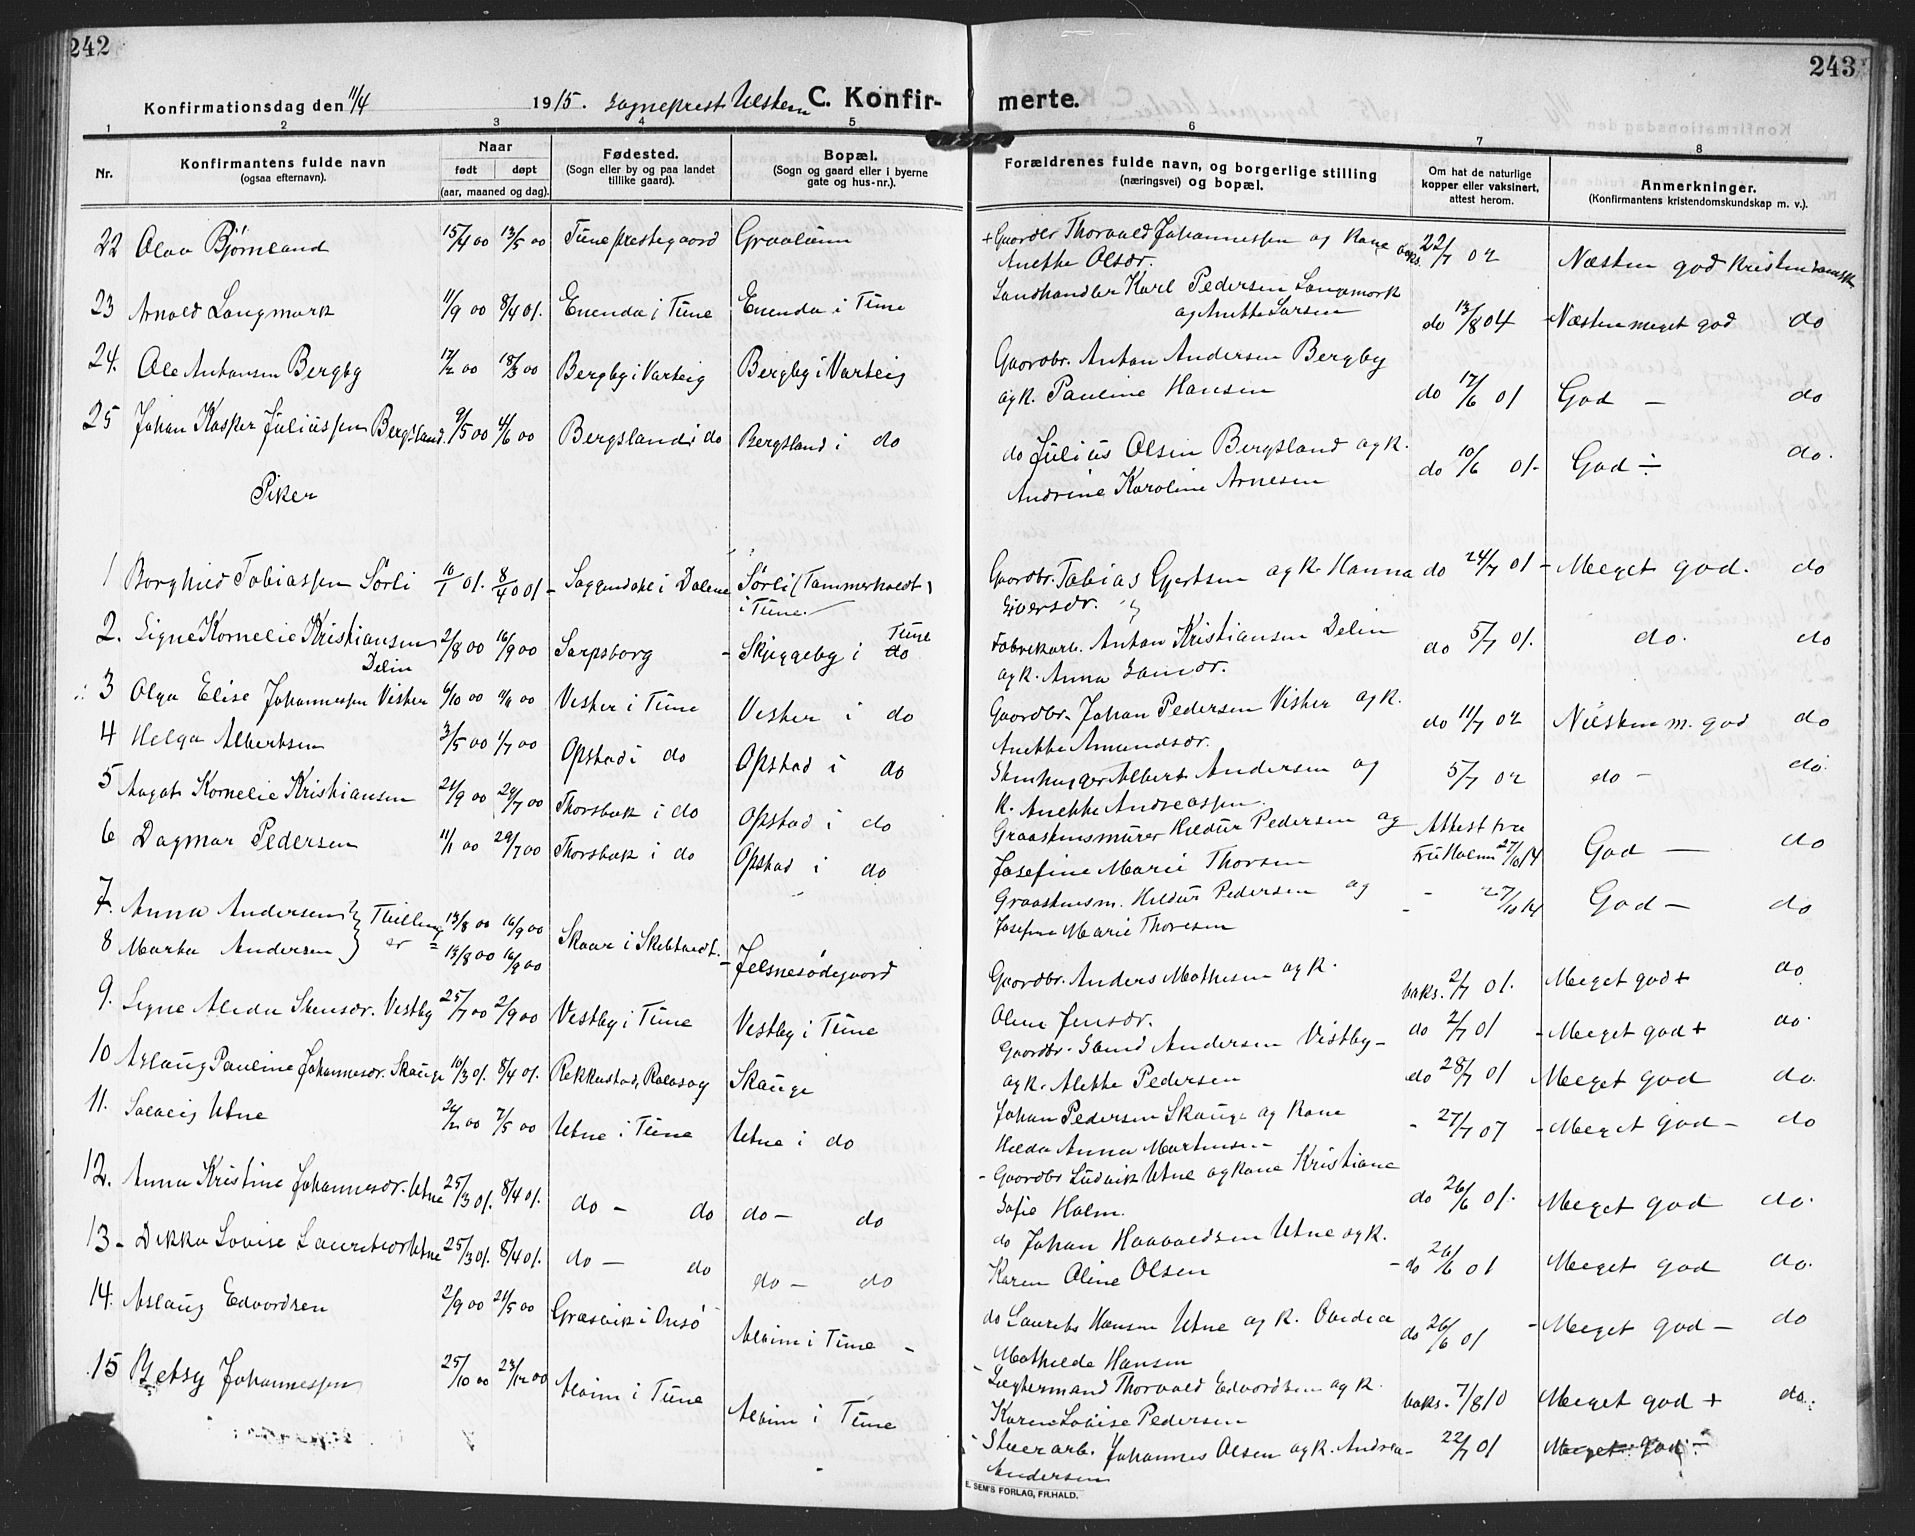 242
Konfirmationsdag den 11/4 1915. Sogneprest Ulstein C. Konfir-
1 2 3 4 5
Nr. Konfirmantens fulde navn (ogsaa efternavn). Naar født døpt (aar, maaned og dag). Fødested. (Sogn eller by og paa landet tillike gaard). Bopæl. (Sogn og gaard eller i byerne gate og hus-nr.).
22 Olav Bjørnland 15/4 00 13/5 00 Tune prestegaard Graalum
23 Arnold Langmark 11/9 00 8/4 01. Enenda i Tune Enenda i Tune
24. Ole Antonsen Bergby 17/2 00 18/3 00 Bergby i Varteig Bergby i Varteig
25 Johan Kasper Juliussen Bergsland. 9/5 00 4/6 00 Bergsland i do Bergsland i do
Piker
1 Borghild Tobiassen Sørli 10/1 01. 8/4 01 Soggendahl i Dalene Sørli (Tammerholdt)
i Tune.
2. Signe Kornelie Kristiansen 2/8 00 16/9 00 Sarpsborg - Skjeggeby i do Tune
Delin
3 Olga Elise Johannessen Vister 6/10 00 Vister i Tune Vister i do
4 Helga Albertsen 3/5 00 1/7 00 Opstad i do Opstad i do
5 Aagot Kornelie Kristiansen 21/9 00 29/7 00 Thorsbæk i do Opstad i do
6 Dagmar Pedersen 11/1 00 29/7 00 Thorsbæk i do Opstad i do
7. Anna Andersen } Tvilling 13/8 00 16/9 00
8 Marta Andersen } er = 13/8 00 16/9 00 Skaar i Skibtvedt. - Jelsnesødegaard
9. Signe Alida Stensdr. Vestby 25/7 00 2/9 00 Vestby i Tune Vestby i Tune
10 Aslaug Pauline Johannesdr. Skauge 10/3 01. 8/4 01. Rekkustad, Rolvsøy Skauge
11. Solveig Utne 26/2 00 7/5 00 Utne i Tune Utne i do
12. Anna Kristine Johannesdr. Utne 25/3 01. 8/4 01. do - do do - do
13- Dikka Lovise Lauritsdr Utne 25/3 01. 8/4 01. do - do do - do
14. Aslaug Edvardsen 2/9 00 21/5 00 Græsvik i Onsø Alvim i Tune -
15 Betsy Johannessen 25/10 00 23/12 00 Alvim i Tune Alvim i Tune
243
merte.
6 7 8
Forældrenes fulde navn, og borgerlige stilling (næringsvei) og bopæl. Om hat de naturlige kopper eller vaksinert, attest herom. Anmerkninger. (Konfirmantens kristendomskundskap m. v.).
+ Gaardbr Thorvald Johannessen og Kone vaks. 22/7 02 Næsten god kristendomsk
Anette Olsdr.
Landhandler Karl Pedersen Langmark
og Anette Larsen do 13/8 04 - Næsten meget god do
Gaardbr. Anton Andersen Bergby
og k. Pauline Hansen do 17/6 01 God - do
do Julius Olsen Bergsland og k.
Andrine Karoline Arnesen do 10/6 01- God ÷ do.
Gaardbr. Tobias Gjertsen og k Hanna do 24/7 01 - Meget god. do
Siversdr.
Fabrikarb. Anton Kristiansen Delin do 5/7 01. do. do
og k. Anna
Gaardbr. Johan Pedersen Visker og k. do 11/7 02 Næsten m. god do
Anette Amundsdr.
Stenhugger Albert Andersen og 5/7 02 do - do.
k. Anette Andreassen.
Graastensmurer Hildur Pedersen og Attest fra
Josefine Marie Thorsen Fru Holm 27/10 14 God - do
Graastensm. Hildur Pedersen og - 27/10 14 God - do
Josefine Marie Thoresen
Gaardbr. Anders Mathisen og k. vaks. 2/7 01. Meget god + do
Oline Jensdr.
Gaardbr. Svend Andersen Vistby- do 2/7 01 - Meget god + do.
og k. Alette Pedersen do 28/7 01 Meget god do.
Johan Pedersen Skauge og Kone - 27/7 07 - Meget god - do
Hilda Anna Martinsen
- Gaardbr Ludvik Utne og Kone Kristiane
Sofie Holm. do 26/6 01. Meget god do.
do Johan Haavaldsen Utne og k.
Karen Oline Olsen - do 26/6 01 Meget god do.
do Laurits Hansen Utne og k. Ovedia do 26/6 01 - Meget god - do
Mathilde Hansen
- Lægtermand Thorvald Edvardsen og k. vaks. 7/8 10 Meget god + do.
Karen Lovise Pedersen
Stuerarb. Johannes Olsen og k. Andrea- 22/7 01 Meget god ÷
Andersen
E. SEM'S FORLAG, FR.HALD.